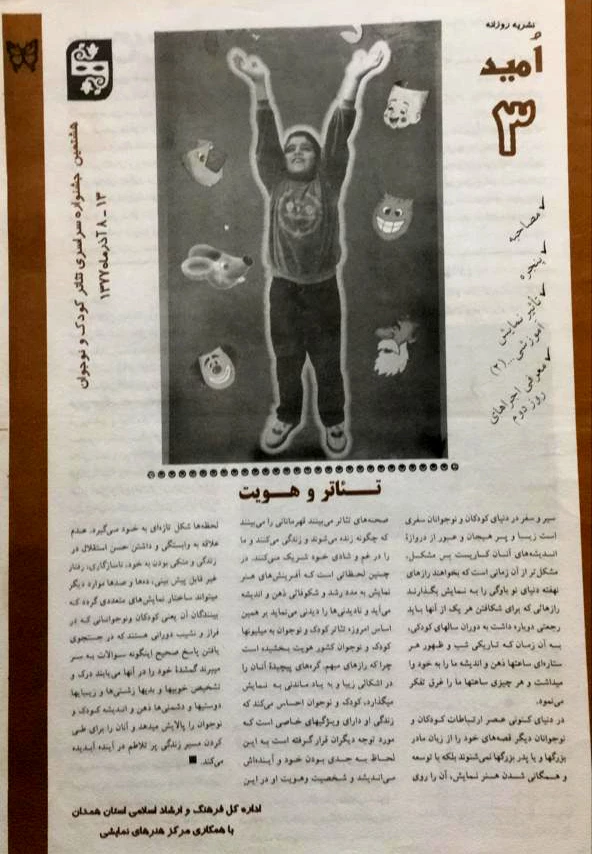 نشریه روزانه
اُمید
۳
✓ مصاحبه
✓ پنجره
✓ تاثیر نمایش
آموزشی...(۲)
✓ معرفی اجراهای
روز دوم
هشتمین جشنواره سراسری تئاتر کودک و نوجوان
۱۳ - ۸ آذر ماه ۱۳۷۷
تـــئاتر و هـــویت
سیر و سفر در دنیای کودکان و نوجوانان سفری
است زیبـا و پـر هیجان و عبور از دروازهٔ
اندیشه‌های آنـان کـاریست پس مشکـل،
مشکل‌تر از آن زمانی است که بخواهند رازهای
نهفته دنیای نو باوگی را بـه نمـایش بگـذارنـد
رازهائی که برای شکافتن هر یک از آنها بـایـد
رجعتی دوباره داشت به دوران سالهای کودکی،
بـه آن زمـان کـه تـاریکی شب و ظهـور هـر
ستاره‌ای ساعتها ذهن و اندیشه ما را به خود وا
میداشت و هر چیزی ساعتها ما را غرق تفکر
می‌نمود.
در دنیای کنونی عـصر ارتبـاطات کـودکـان و
نوجوانان دیگر قصه‌های خود را از زبان مادر
بزرگها و یا پدر بزرگها نمی‌شنوند بلکه با توسعه
و همگانی شـدن هـنر نمایش، آن را روی
صحنه‌های تئاتر می‌بینند قهرمانانی را می‌بینند
که چگونه زنده می‌شوند و زندگی می‌کنند و ما
را در غم و شادی خود شریک می‌کنند. در
چنین لحظـاتی است کـه آفـرینش‌های هـنر
نمایش به مدد رشد و شکوفائی ذهن و اندیشه
می‌آید و نادیدنی‌ها را دیدنی می‌نماید بر همین
اساس امروزه تئاتر کودک و نوجوان به میلیونها
کودک و نوجوان کشور هویت بخشیده است
چرا که رازهای مبهم گره‌های پیچیدهٔ آنـان را
در اشکالی زیبا و به یاد مـاندنی بـه نمـایش
میگذارد، کودک و نوجوان احساس می‌کند که
زندگی او دارای ویـژگیهای خـاصی است کـه
مورد توجه دیگران قرار گـرفته است بـه ایـن
لحـاظ بـه جـدی بـودن خـود و آینده‌اش
می‌اندیشد و شخصیت وهویت او در این
لحظه‌ها شکل تازه‌ای به خود می‌گیرد. عـدم
علاقه به وابستگی و داشتن حسن استقلال در
زندگی و متکی بودن به خود، ناسازگاری، رفتار
غیر قابل پیش بینی، ده‌ها و صدها موارد دیگر
میتواند ساختار نمایش‌های متعددی گردد کـه
بینندگان آن یعنی کودکان ونوجوانانی کـه در
فراز و نشیب دورانی هستند که در جستجوی
یافتن پاسخ صحیح اینگونه سـوالات بـه سـر
میبرند گمشدهٔ خود را در آنها می‌یابند درک و
تشخیص خوبیها و بدیها زشتی‌ها و زیبـایها
دوستیها و دشمنی‌ها ذهن و اندیشه کـودک و
نوجوان را پالایش میدهد و آنان را برای طـی
کردن مسیر زندگی پر تلاطم در آینده آبدیده
می‌کند. ■
اداره کل فرهنگ و ارشاد اسلامی استان همدان
با همکاری مرکز هنرهای نمایشی